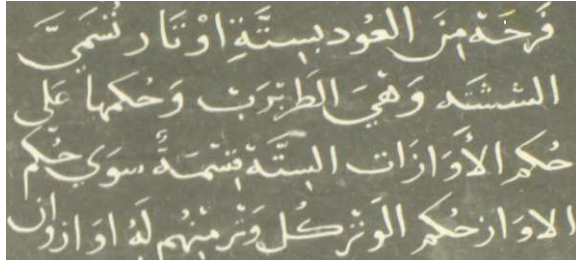 فَرحَة مِنَ العُود بسِتَّةِ اوْتَار تُسَمىَّ
الششته وَهْيَ الطَربْرَبْ وَحُكمهاَ عَلى
حُكمِ الأوَازَات الستَّة قسْمَةً سوَي حُكم
الاوَاز حُكم الوَترْ كُل وَترْ مِنْهُم لَهُ اوَاز وان